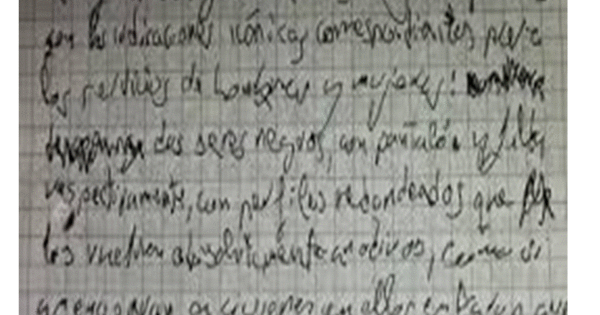 con las indicaciones icónicas correspondientes para
los servicios de hombres y mujeres:
dos seres negros, con pantalón y falda
respectivamente, con perfiles redondeados que
les vuelven absolutamente anodinos, como si